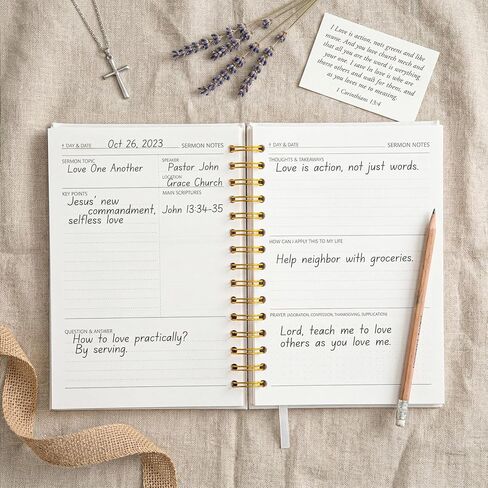 I Love is action, nots greens and like
nouse. And you love church mech and
that all you are the word is werything
your one. I save in love is who are
others and wait for them, and
as you loves me to measing.
1 Corinthians 13:4
DAY & DATE Oct 26, 2023 SERMON NOTES
SERMON TOPIC
Love One Another
SPEAKER
Pastor John
LOCATION
Grace Church
KEY POINTS
Jesus' new
commandment,
selfless love
MAIN SCRIPTURES
John 13:34-35
QUESTION & ANSWER
How to love practically?
By serving.
DAY & DATE SERMON NOTES
THOUGHTS & TAKEAWAYS
Love is action, not just words.
HOW CAN I APPLY THIS TO MY LIFE
Help neighbor with groceries.
PRAYER (ADORATION, CONFESSION, THANKSGIVING, SUPPLICATION)
Lord, teach me to love
others as you love me.